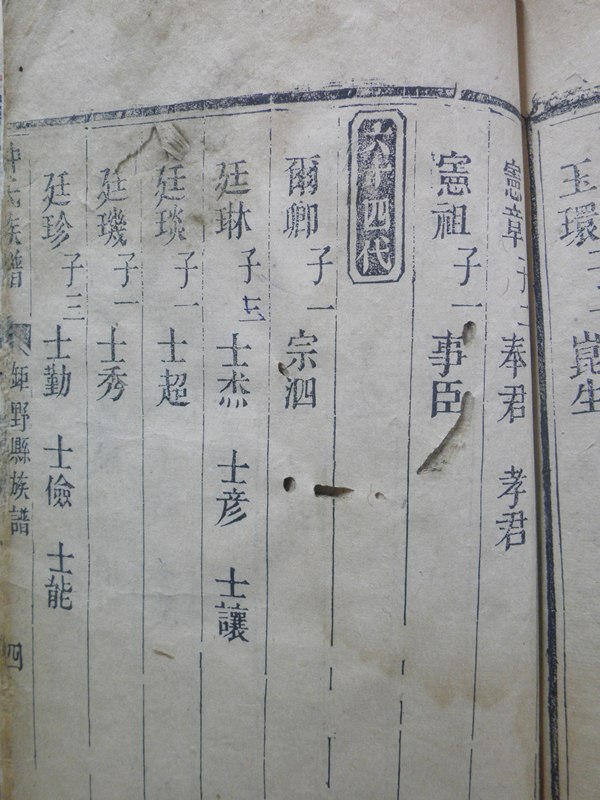 玉環 子一 崑生
憲章 子二 奉君 孝君
憲祖 子一 事臣
六十四代
爾卿 子一 宗泗
廷琳 子三 士杰 士彦 士讓
廷琰 子一 士超
廷璣 子一 士秀
廷珍 子三 士勤 士儉 士能
氏族譜 鉅野縣族譜 四